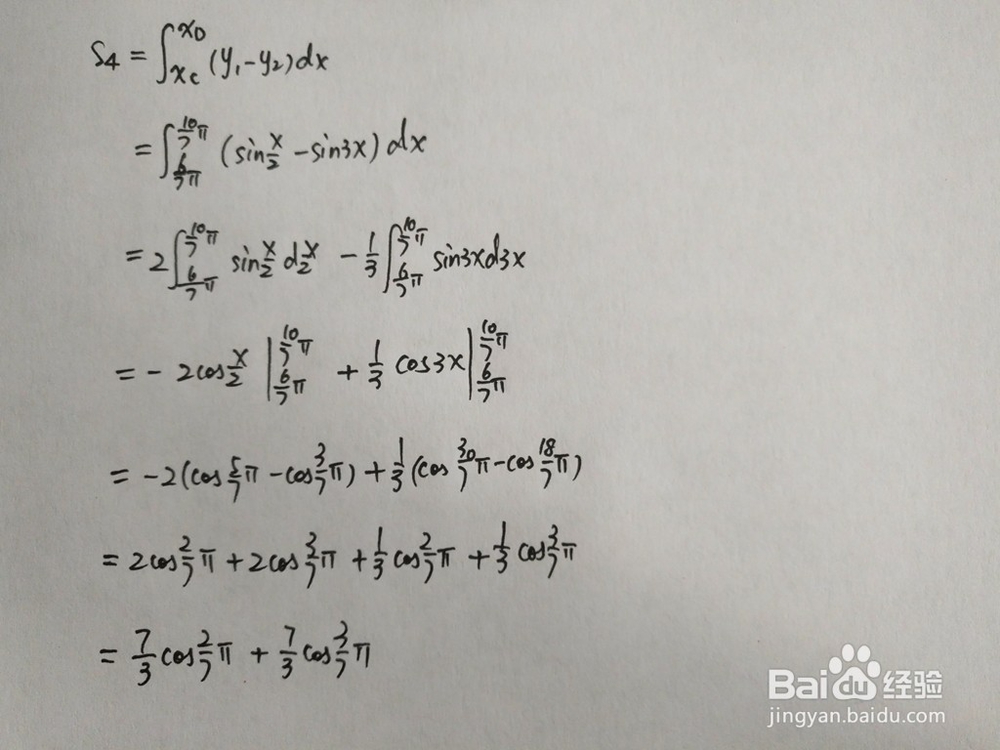 S₄ = ∫_{x_C}^{x_D} (y₁-y₂)dx
= ∫_{6/7 π}^{10/7 π} (sin x/2 - sin3x) dx
= 2∫_{6/7 π}^{10/7 π} sin x/2 d x/2 - 1/3 ∫_{6/7 π}^{10/7 π} sin3xd3x
= - 2cos x/2 |_{6/7 π}^{10/7 π} + 1/3 cos3x |_{6/7 π}^{10/7 π}
= -2(cos 5/7 π - cos 3/7 π) + 1/3 (cos 30/7 π - cos 18/7 π)
= 2cos 2/7 π + 2cos 3/7 π + 1/3 cos 2/7 π + 1/3 cos 3/7 π
= 7/3 cos 2/7 π + 7/3 cos 3/7 π
Baidu经验
jingyan.baidu.com